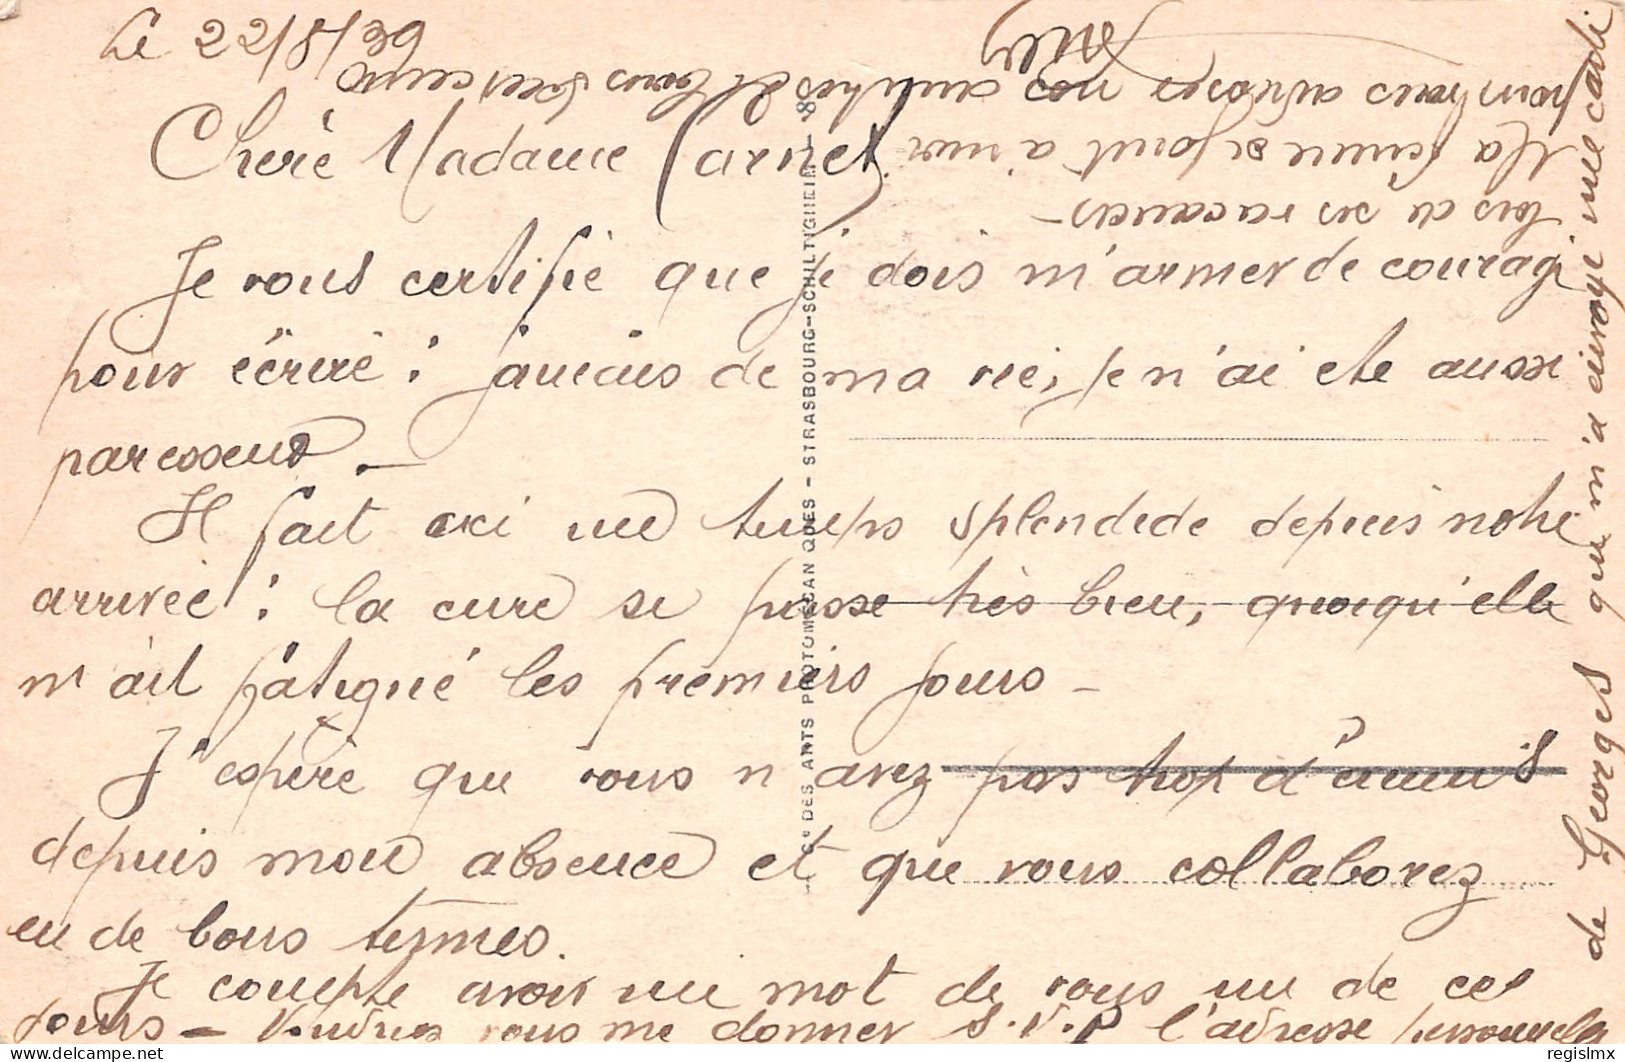 Le 22/8/39
Chère Madame Carnet
Je vous certifie que je dois m'armer de courage
pour écrire : jamais de ma vie, je n'ai été aussi
paresseux.
Il fait ici un temps splendide depuis notre
arrivée : la cure se passe très bien, quoiqu'elle
m'ait fatigué les premiers jours -
J'espère que vous n'avez pas trop d'ennuis
depuis mon absence et que vous collaborez
en de bons termes.
Je compte avoir un mot de vous un de ces
jours - Voudriez vous me donner S.V.P l'adresse personnelle
de Georges qui m'a envoyé une carte
lors de ses vacances -
Ma femme se joint à moi
pour vous adresser nos
Cie DES ARTS PHOTOMECANIQUES - STRASBOURG-SCHILTIGHEIM - 8
regislmx